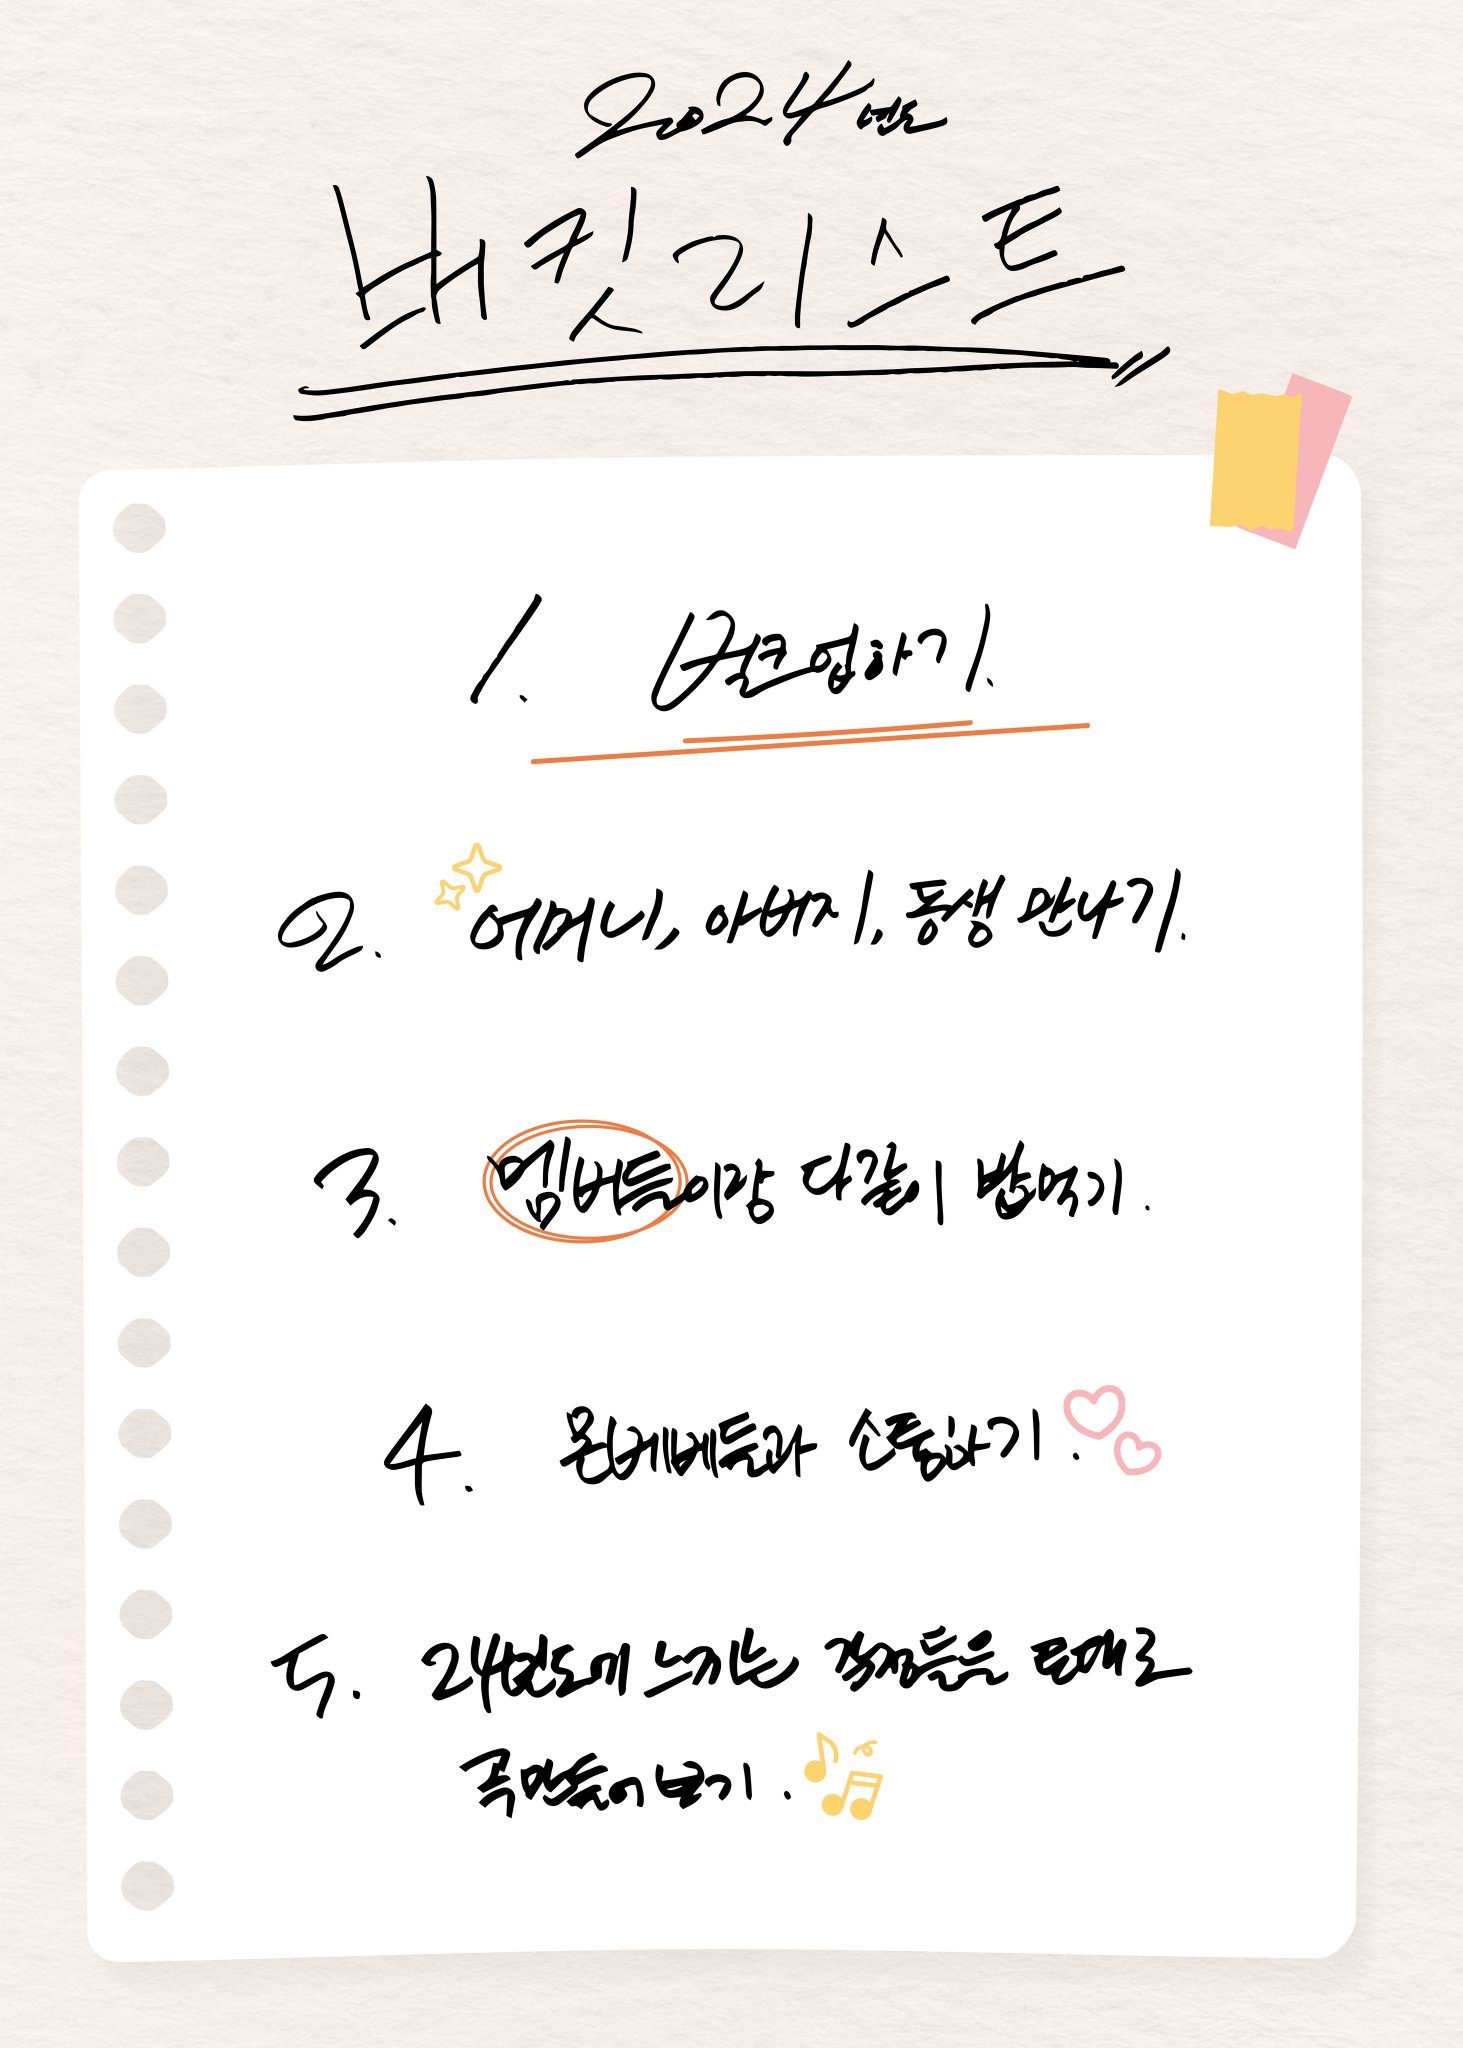 2024년도
버킷리스트
1. 벌크업하기.
2. 어머니, 아버지, 동생 만나기.
3. 멤버들이랑 다같이 밥먹기.
4. 몬베베들과 소통하기.
5. 24년도에 느끼는 감정들을 토대로
곡만들어보기.